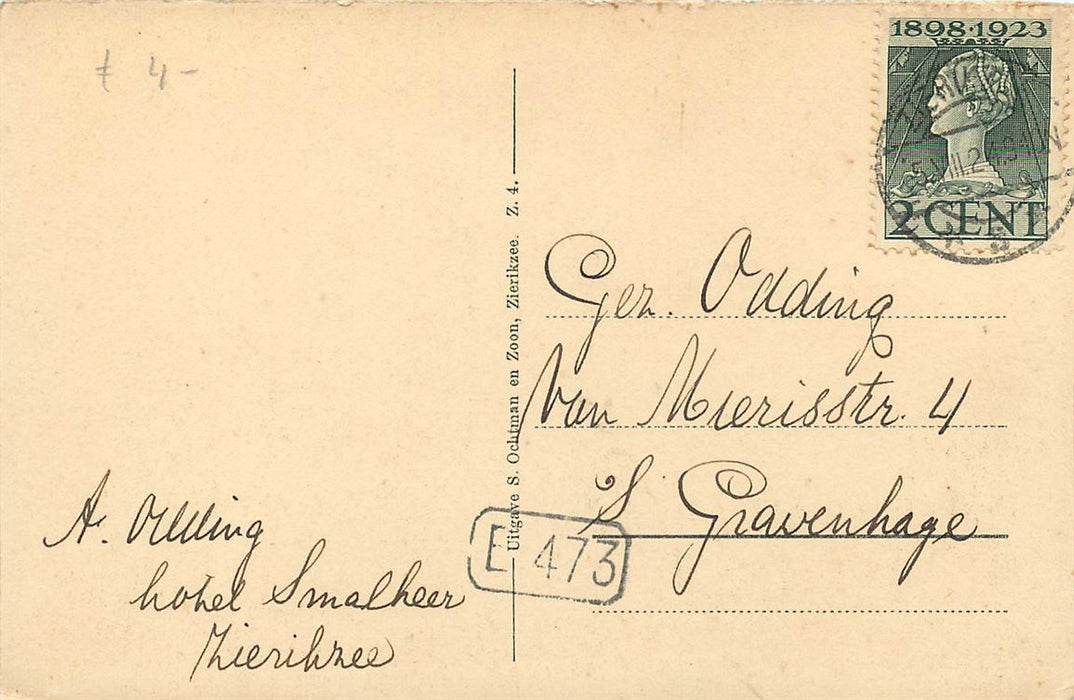 ƒ 4-
1898·1923
2 CENT
Uitgave S. Ochtman en Zoon, Zierikzee. Z. 4.
Gez. Odding
Van Mierisstr. 4
S Gravenhage
E 473
A. Odding
hotel Smalheer
Zierikzee